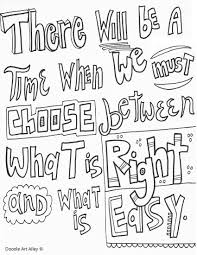 There Will Be A
Time When We must
CHOOSE between
What is Right
and What is Easy.
Doodle Art Alley ©